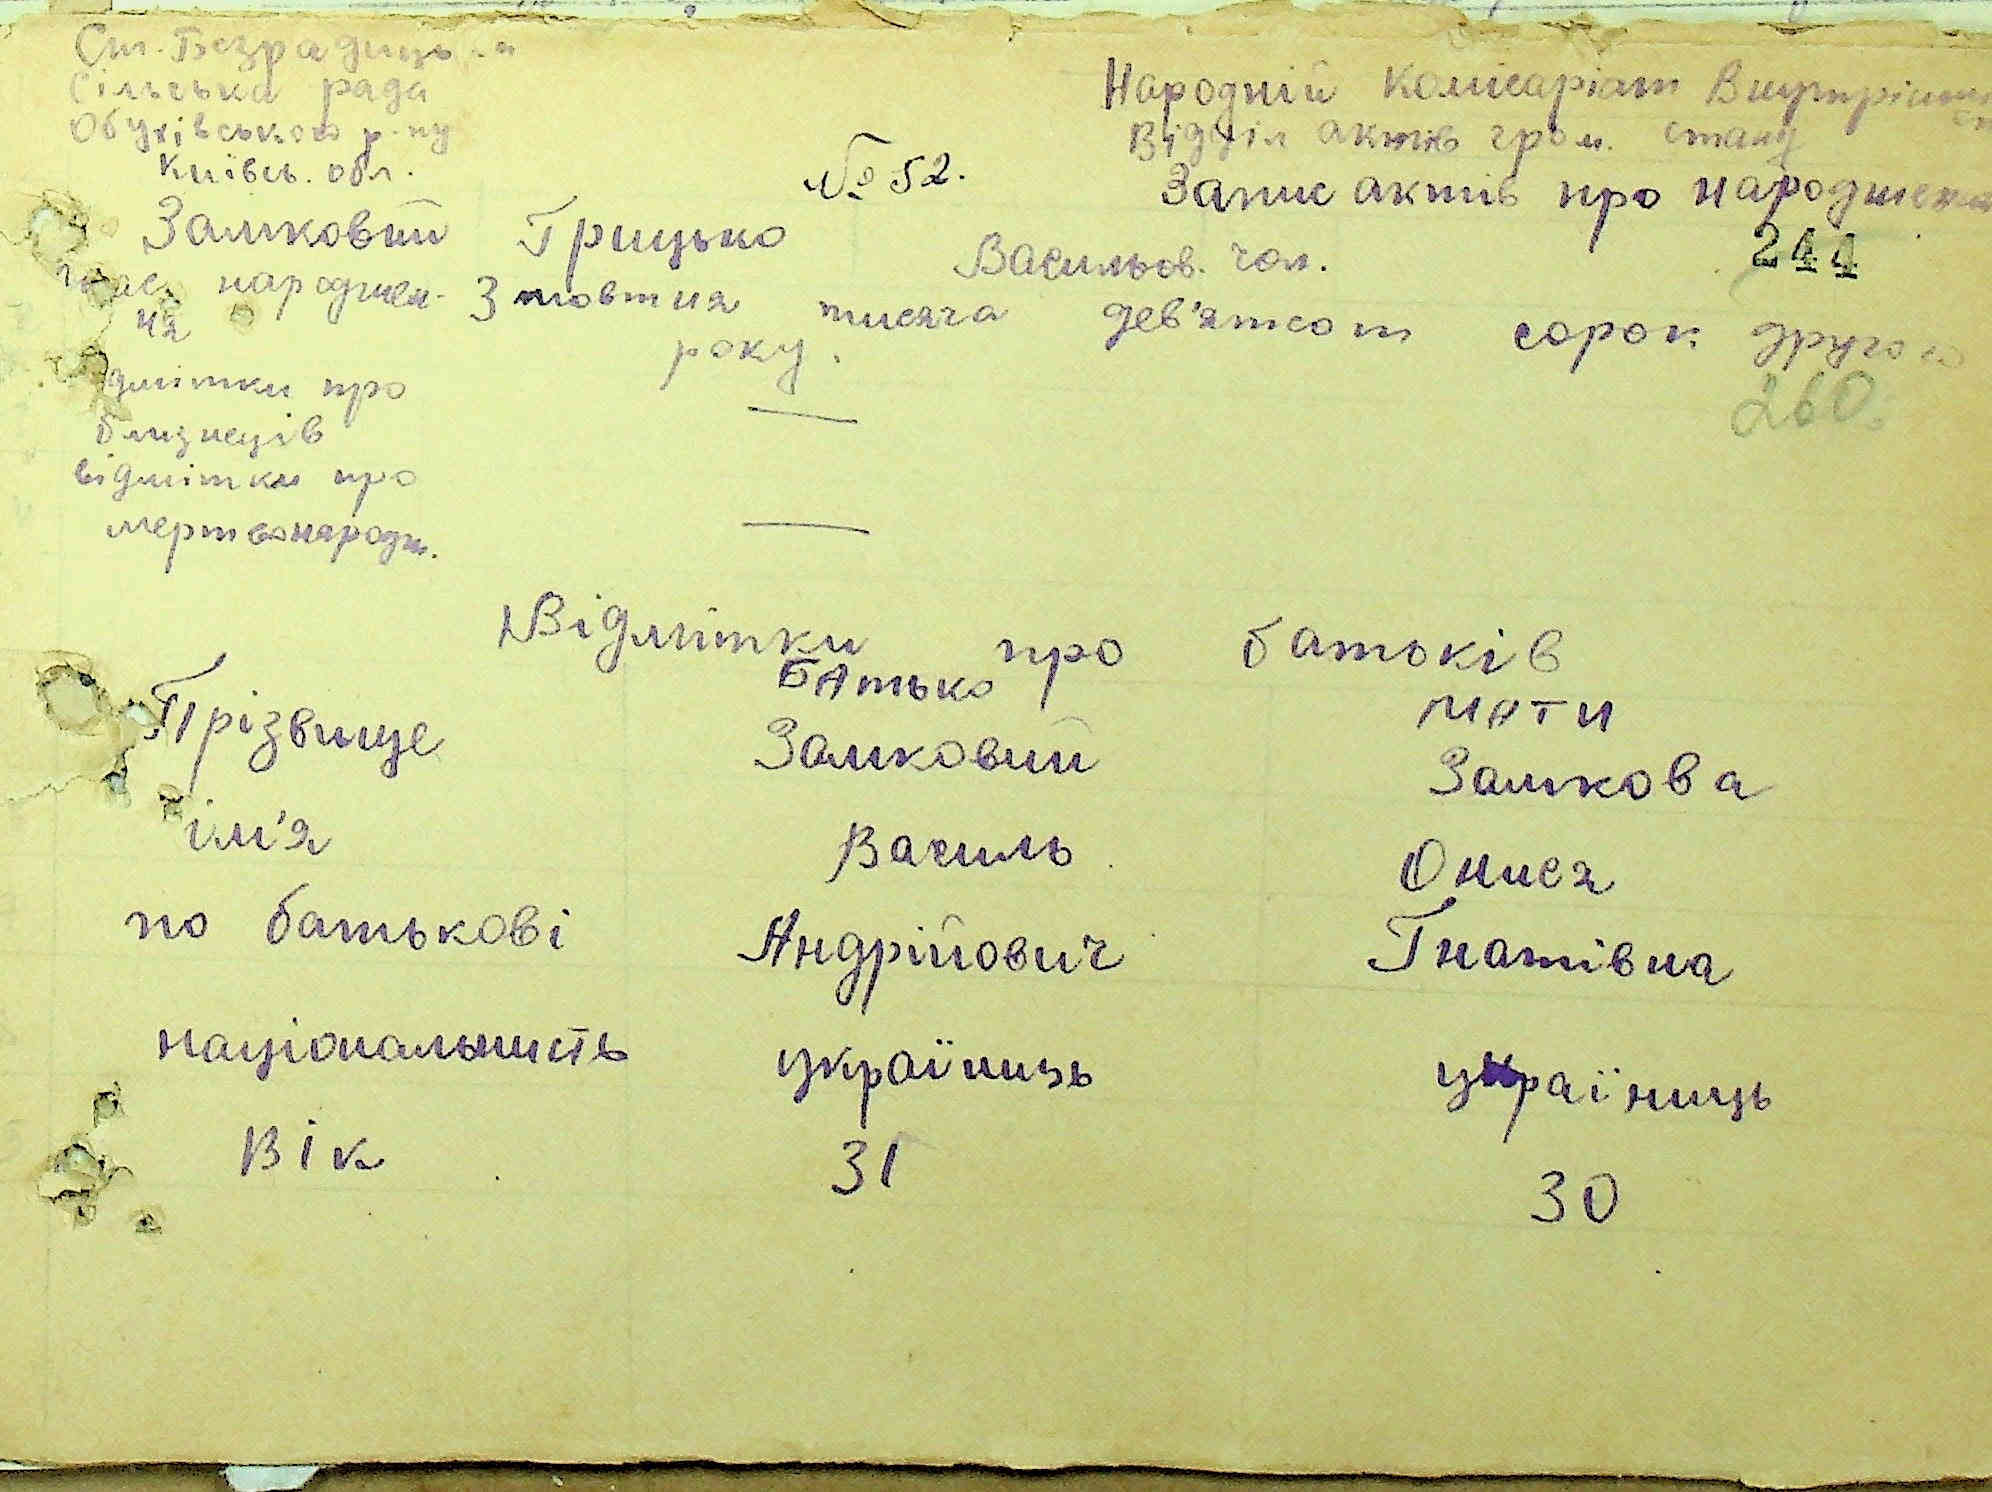 Ст. Безрадицька
Сільська рада
Обухівського р-ну
Київсь. обл.
Народній Комісаріат Внутрішніх
Відділ актів гром. стану
№ 52.
Запис актів про народження
244
Замковий Грицько Васильов. чол.
час народжен-ня 3 жовтня тисяча дев'ятсот сорок другого
року.
260.
відмітки про
близнеців
відмітки про
мертвонародж.
Відмітки про батьків
Батько мати
Прізвище Замковий Замкова
ім'я Василь Онися
по батькові Андрійович Гнатівна
національність україниць україниць
Вік 31 30